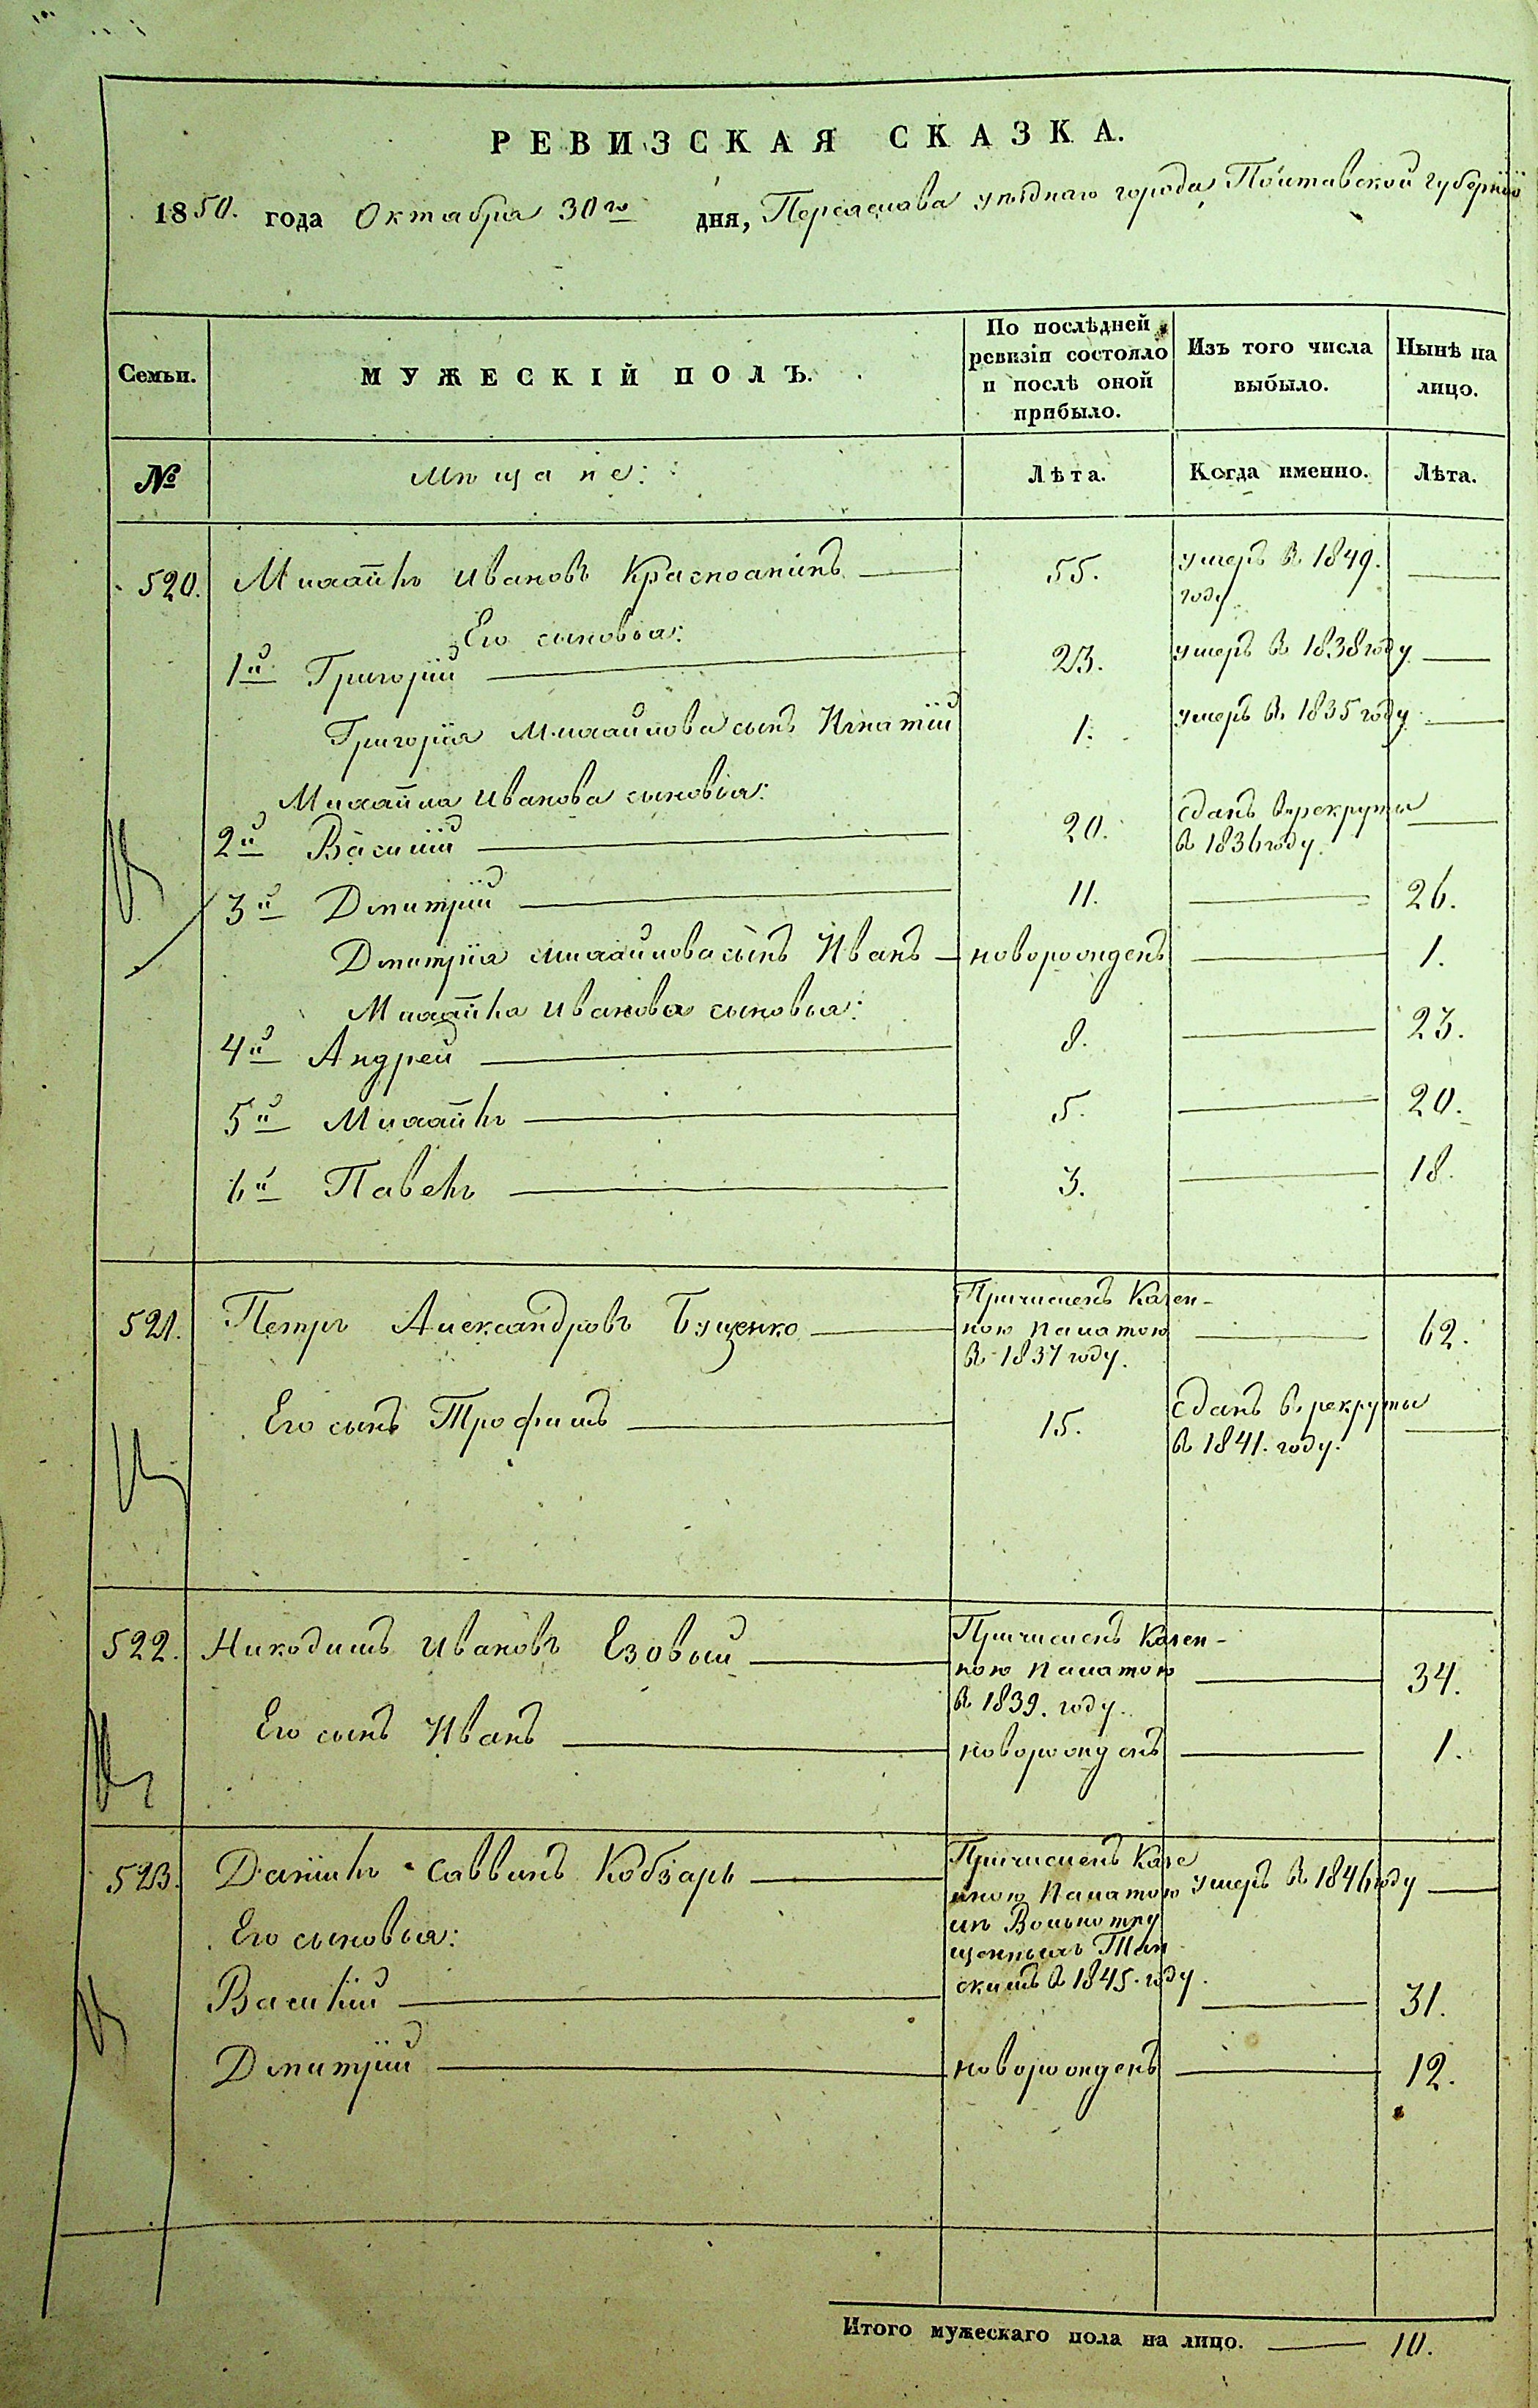 РЕВИЗСКАЯ СКАЗКА.
1850. года Октабря 30го дня, Переяслава уѣзднаго города, Полтавской губерніи
Семьи. МУЖЕСКІЙ ПОЛЪ. По послѣдней ревизіи состояло и послѣ оной прибыло. Изъ того числа выбыло. Нынѣ на лицо.
№ Мѣщане: Лѣта. Когда именно. Лѣта.
520. Михайлъ Ивановъ 55. умеръ въ 1849. году
Его сыновья:
1й Григорій 23. умеръ въ 1838 году
Григорія Михайлова сынъ Игнатій 1. умеръ въ 1835 году
Михайла Иванова сыновья:
2й Василій 20. сданъ в рекруты въ 1836 году.
3й Дмитрій 11. 26.
Дмитрія Михайлова сынъ Иванъ новорожденъ 1.
Михайла Иванова сыновья:
4й Андрей 8. 23.
5й Михайлъ 5. 20.
6й Павелъ 3. 18.
521. Петръ Александровъ Бущенко Причисленъ Казен-
ною Палатою 62.
въ 1837 году.
Его сынъ Трофимъ 15. сданъ в рекруты
въ 1841. году.
522. Никодимъ Ивановъ Езовый Причисленъ Казен-
ною Палатою 34.
въ 1839. году.
Его сынъ Иванъ новорожденъ 1.
523. Даніилъ Саввинъ Кобзарь Причисленъ Казе
нною Палатою умеръ въ 1846 году
Его сыновья: изъ Вольноотпу
щенныхъ
въ 1845. году.
Василій 31.
Дмитрій новорожденъ 12.
Итого мужескаго пола на лицо. 10.